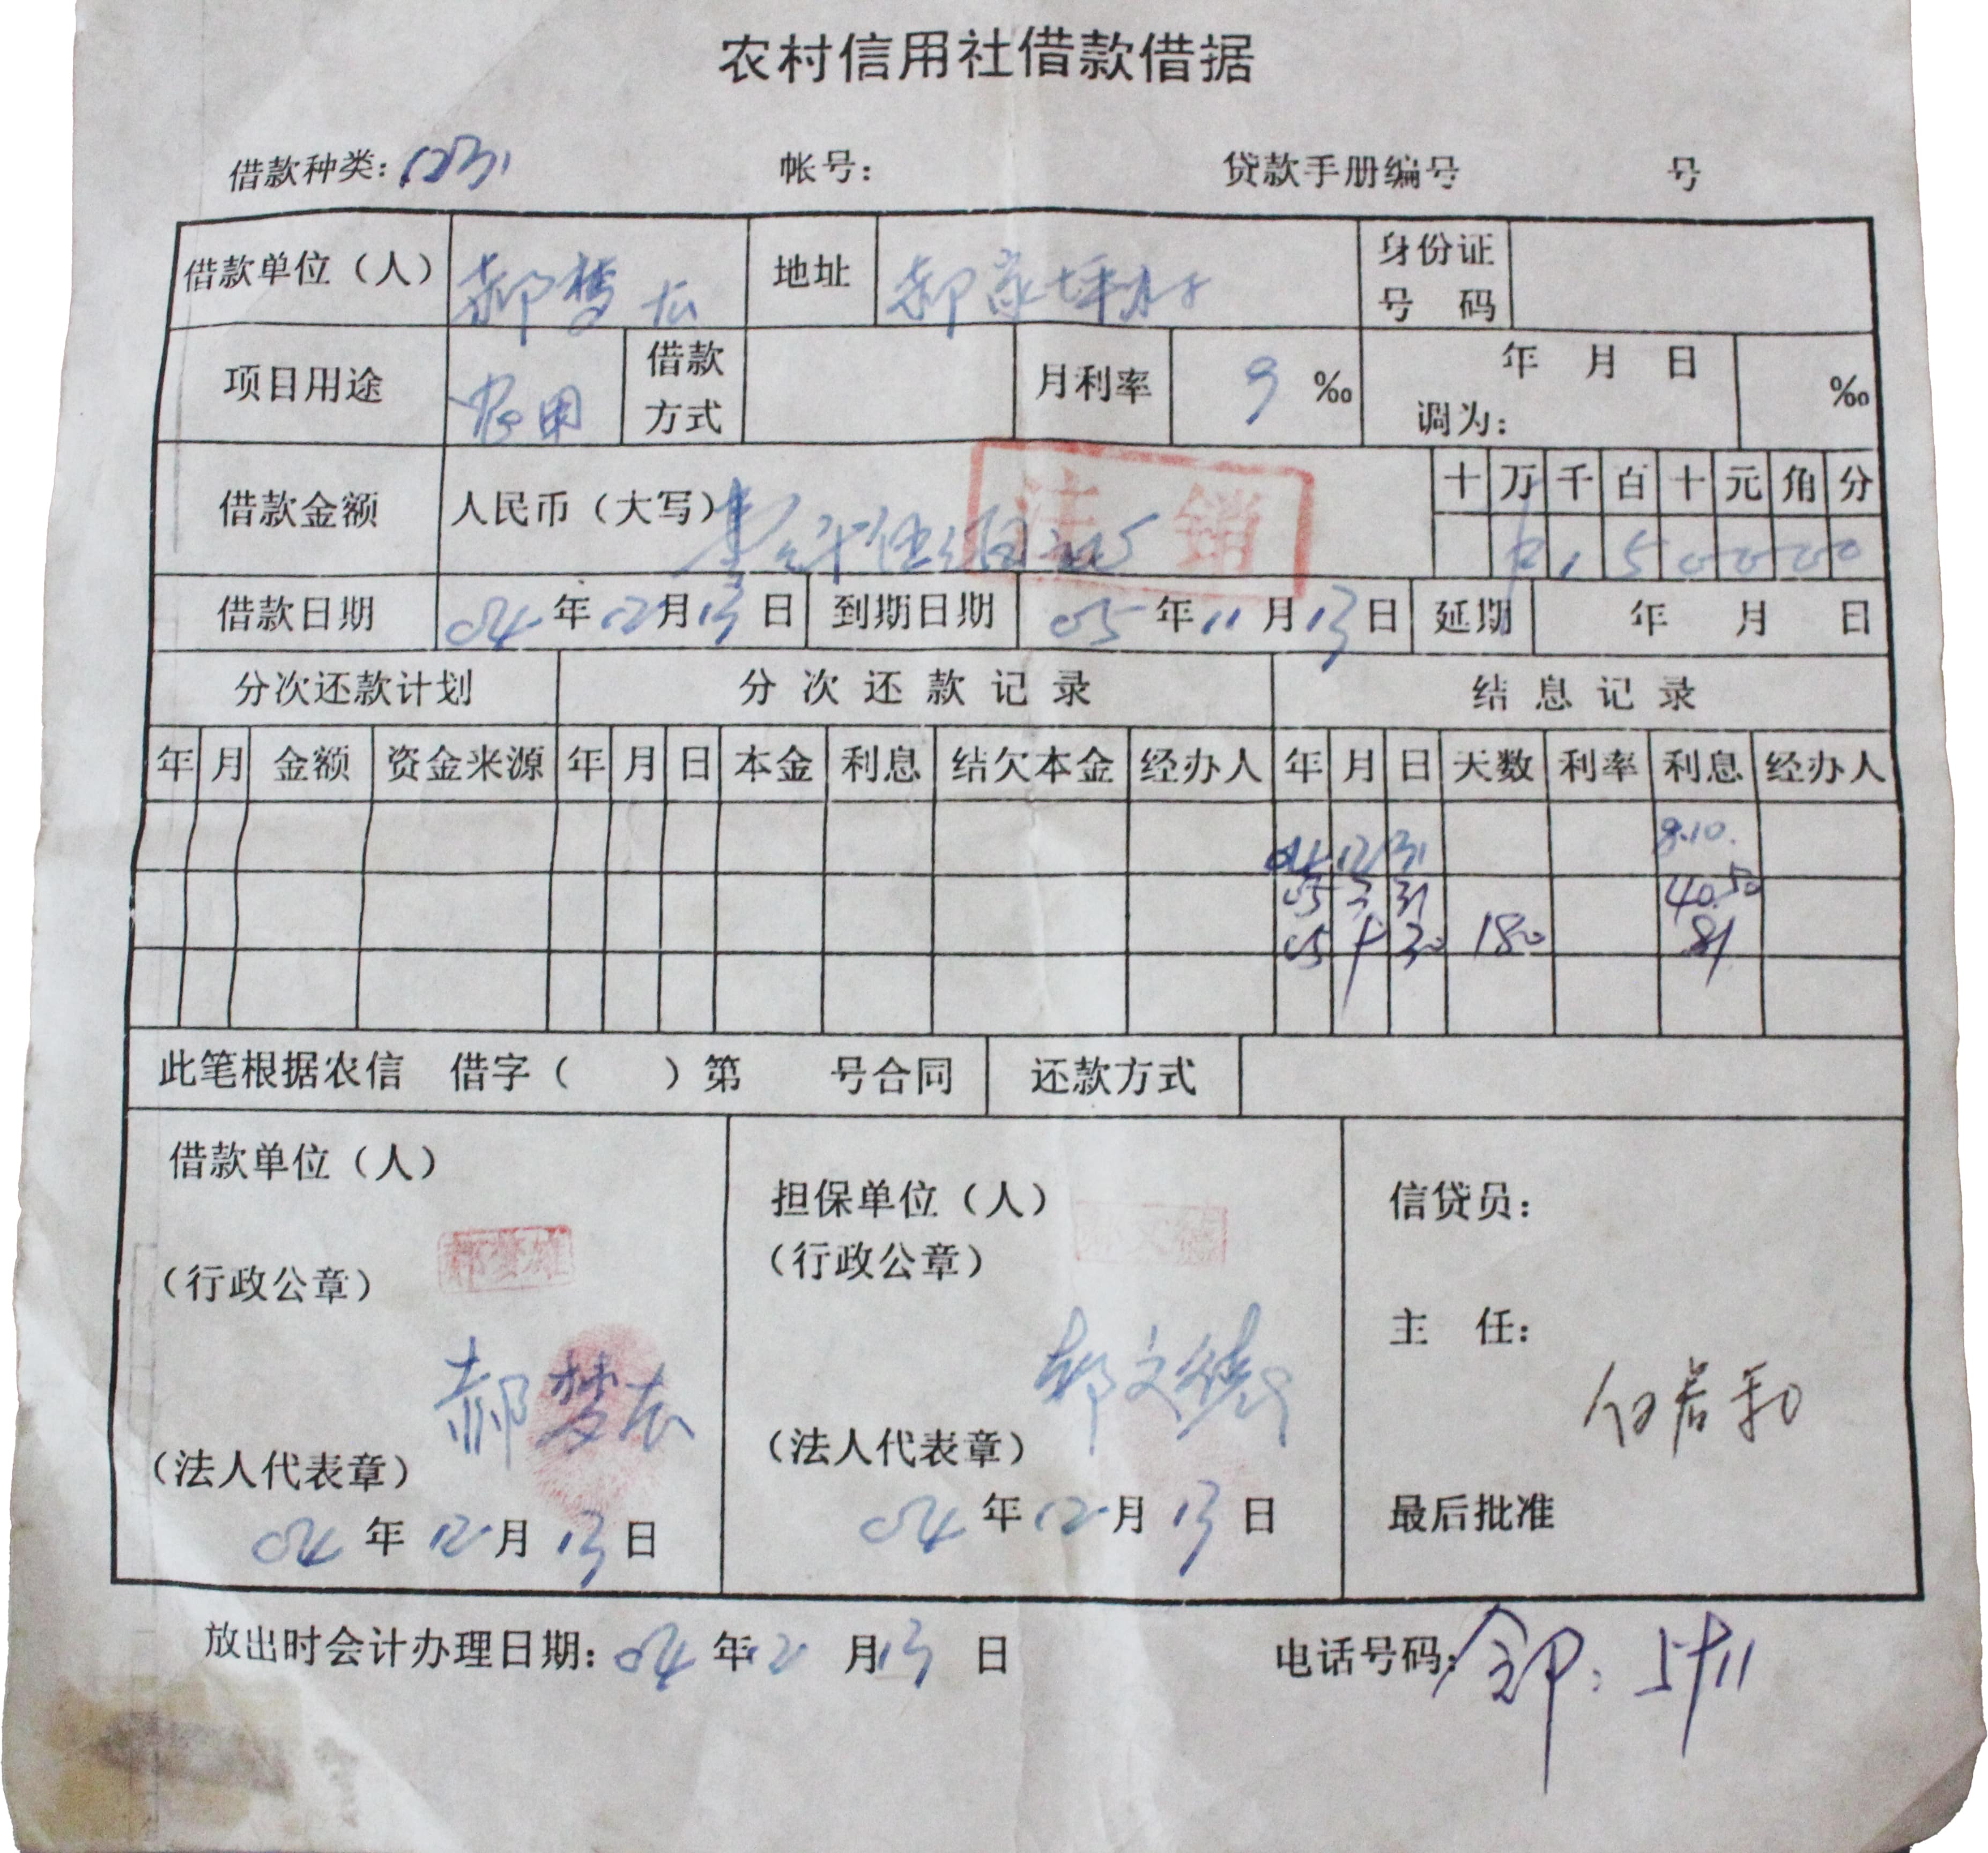 农村信用社借款借据
借款种类: 1231 帐号: 贷款手册编号 号
借款单位（人） 郝梦 地址 郝家坪村 身份证号码
项目用途 农用 借款方式 月利率 9 ‰ 年 月 日 调为: ‰
借款金额 人民币（大写） 壹仟伍佰元 注销 十 万 千 百 十 元 角 分
1 5 0 0 0 0
借款日期 04 年 12 月 13 日 到期日期 05 年 11 月 13 日 延期 年 月 日
分次还款计划 分次还款记录 结息记录
年 月 金额 资金来源 年 月 日 本金 利息 结欠本金 经办人 年 月 日 天数 利率 利息 经办人
04 12 31 8.10.
05 3 31 40.50
05 9 30 180 81
此笔根据农信 借字（ ）第 号合同 还款方式
借款单位（人）
（行政公章）
郝梦
（法人代表章）
04 年 12 月 13 日
担保单位（人）
（行政公章）
郝文
（法人代表章）
04 年 12 月 13 日
信贷员:
主 任:
最后批准
放出时会计办理日期: 04 年 12 月 13 日 电话号码: